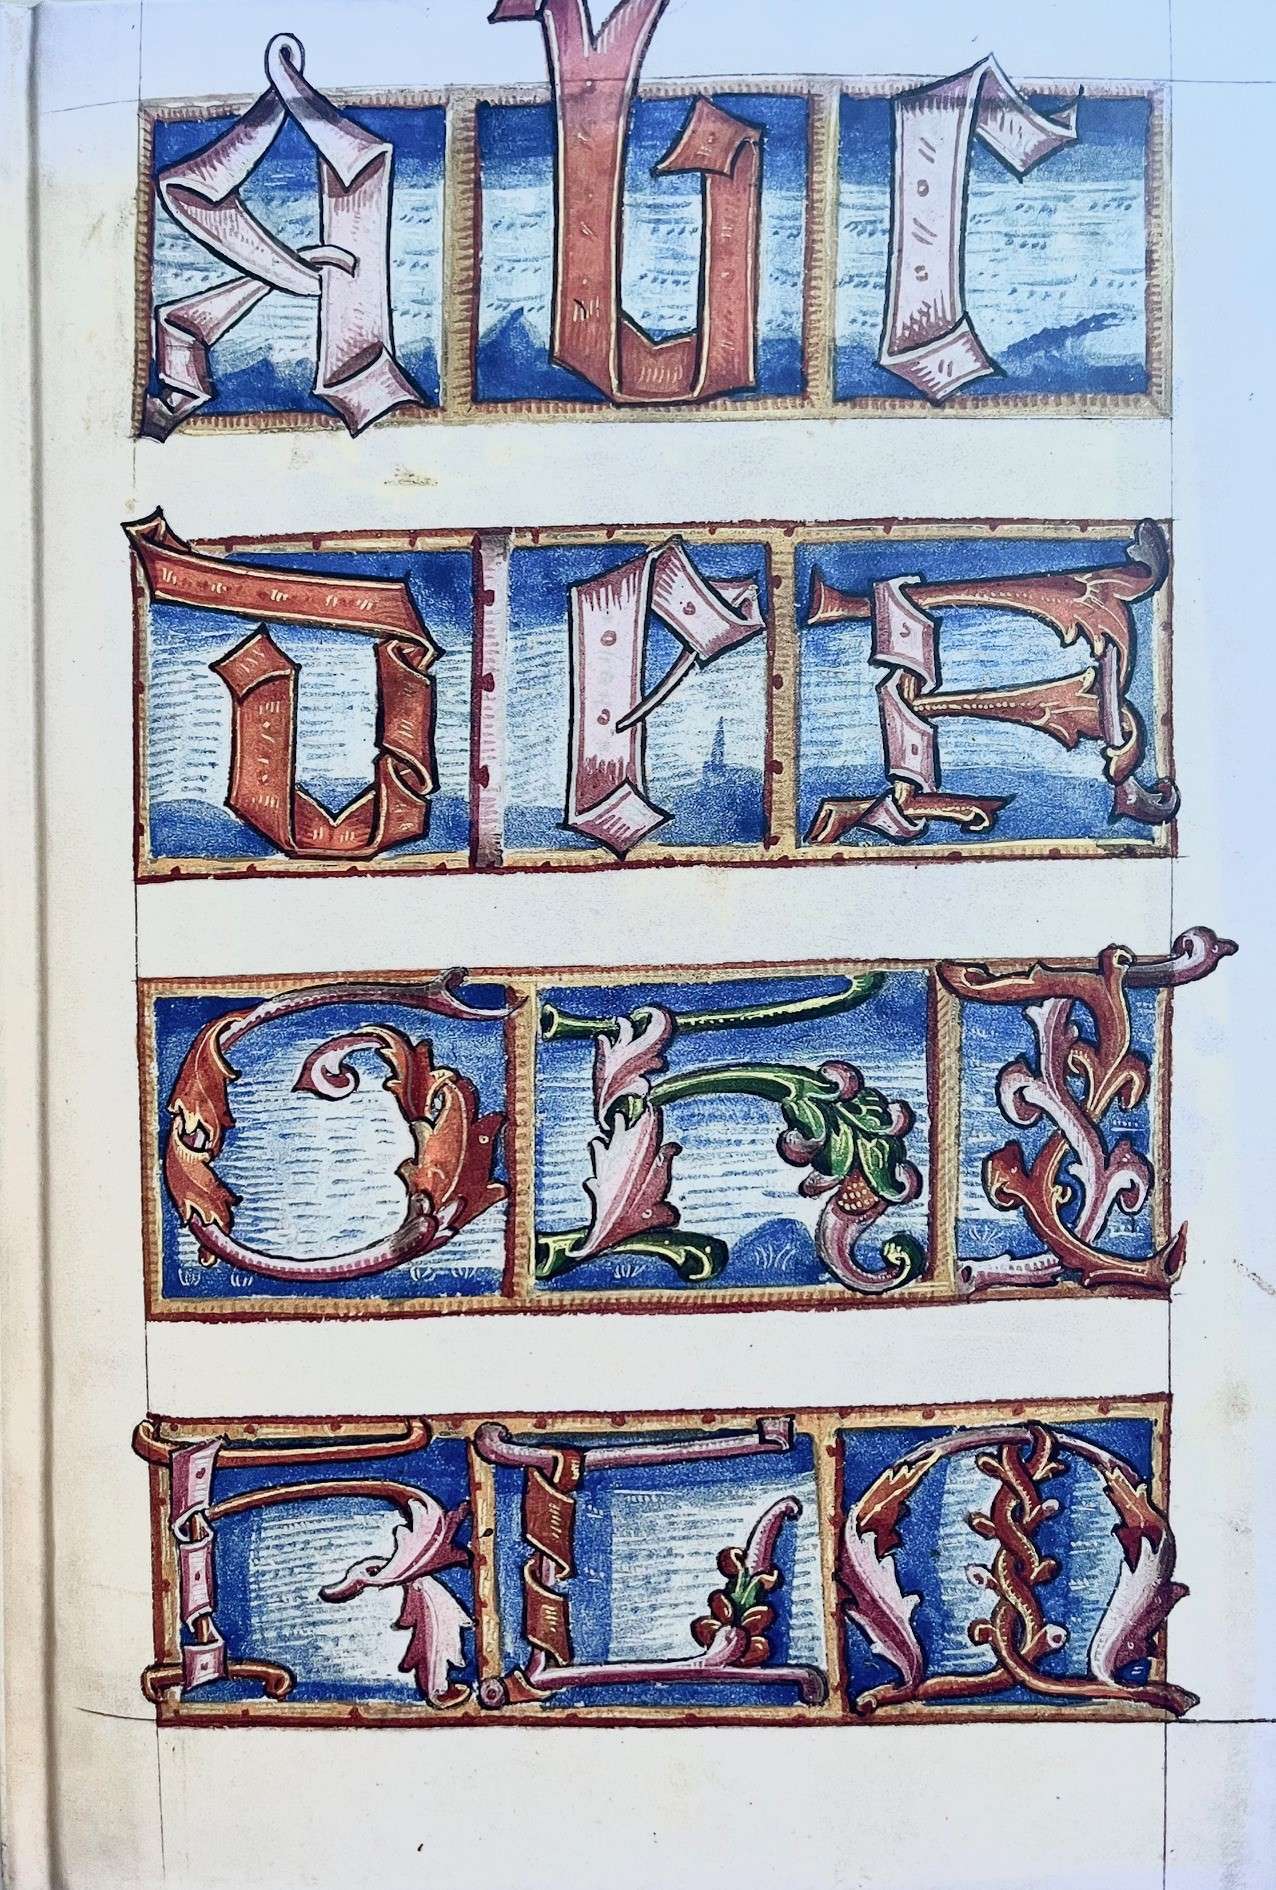 A b c
d e F
G h I
K L M